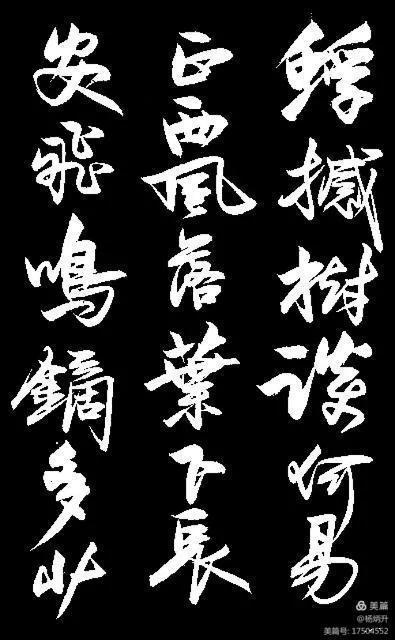 蜉撼樹談何易
正西風落葉下長
安飛鳴鏑多少
美篇
@杨炳升
美篇号: 17504552